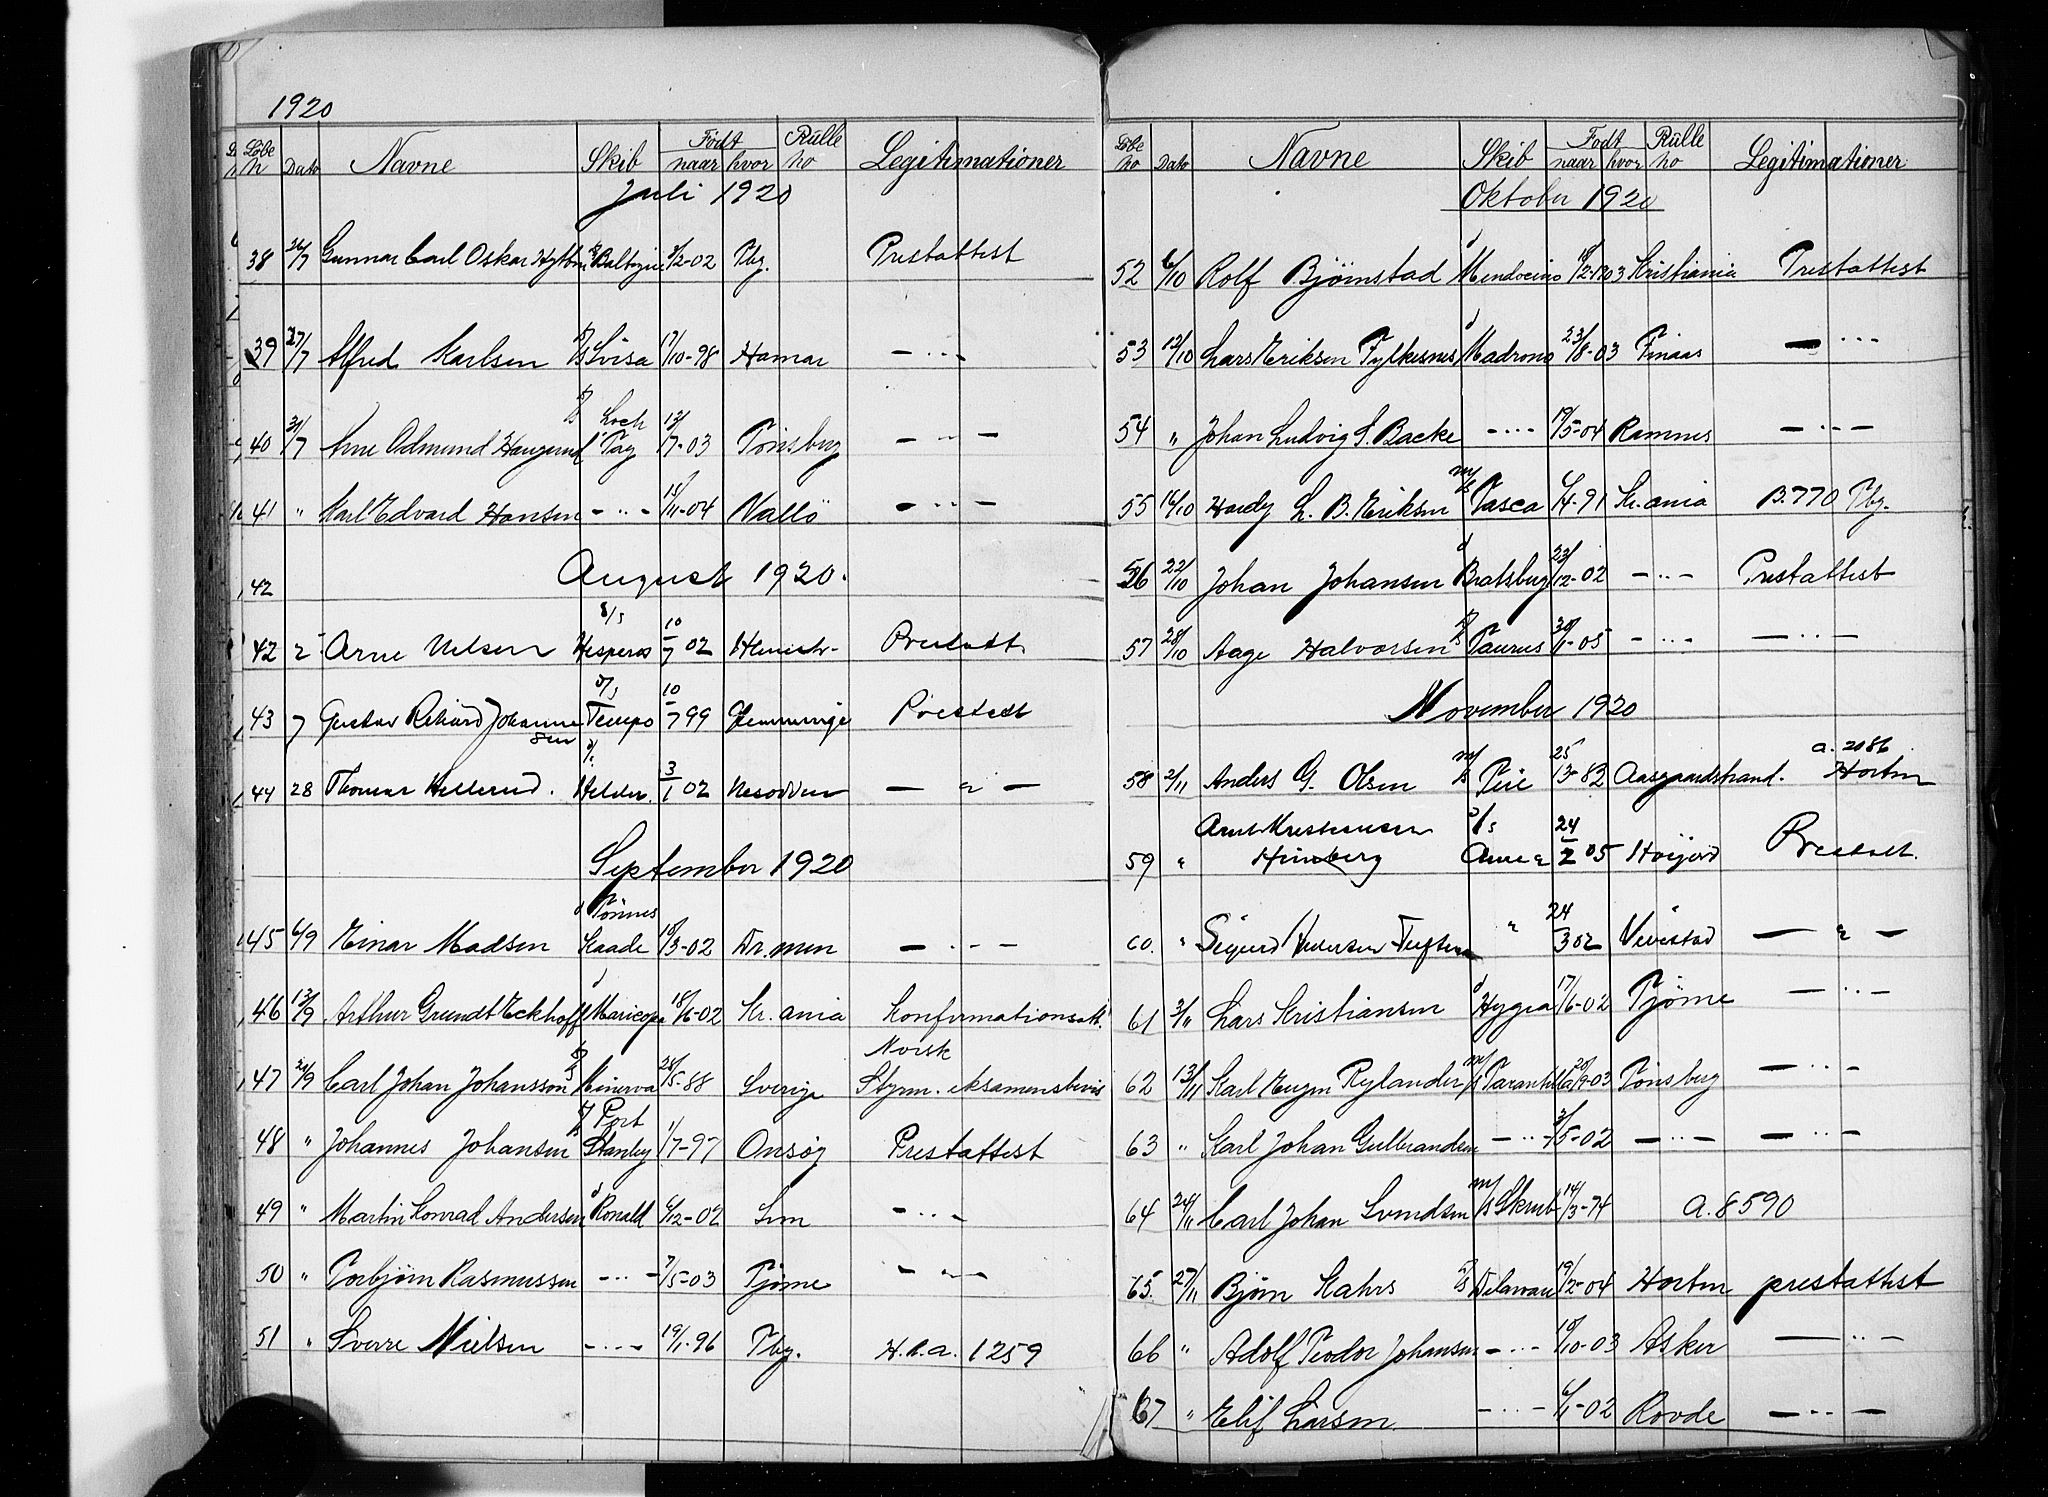 1920
Löbe n Dato Navne Skib Födt naar hvor Rulle no Legitimationer
Juli 1920
38 26/7 Gunnar Carl Oskar 2/2-02 Tbg. Prestattest
39 27/7 Alfred Karlsen s/s Svisa 17/10-98 Hamar — ·· —
40 31/7 Arne Odmund Haugerud s/s Loch Tay 12/7-03 Tönsberg — ·· —
41 " Karl Edvard Hansen — ·· — 15/11-04 Vallö — ·· —
August 1920.
42
42 2 Arne Nelsen s/s Hesperos 10/7 02 Prestatt
43 7 Gustav Rikard Johannesen s/s Tempo 10/7 99 Glemminge Prestatt
44 28 Thomas Hellerud. Helder. 3/1 02 Nesodden — " —
September 1920
45 6/9 Einar Madsen d Tönnes Kaade 10/3-02 Dr.men — ·· —
46 13/9 Arthur Grundt Eckhoff d Maricopa 18/6-02 Kr.ania Konfirmationsatt.
47 21/9 Carl Johan Johansson s/s Minerva 28/5-88 Sverige Norsk Styrm. eksamensbevis
48 " Johannes Johansen s/s Port Stanley 1/7-97 Onsöy Prestattest
49 " Martin Konrad Andersen d Ronald 6/12-02 Sem — ·· —
50 " Torbjörn Rasmussen — ·· — 7/5-03 Tjöme — ·· —
51 " Sverre Nielsen — ·· — 19/1-96 Tbg. H.a.a. 1259
Löbe no Dato Navne Skib Födt naar hvor Rulle no Legitimationer
Oktober 1920
52 6/10 Rolf Björnstad d Mendocino 19/2-1903 Kristiania Prestattest
53 12/10 Lars Eriksen Fylkesnes d Madrono 23/8-03 Finaas — ·· —
54 " Johan Ludvig S. Backe — ·· — 19/5-04 Ramnes — ·· —
55 16/10 Hardy L. B. Eriksen m/s Vasca 6/4-91 Kr.ania B.770 Tbg.
56 22/10 Johan Johansen d Bratsberg 23/12-02 — ·· — Prestattest
57 28/10 Aage Halvorsen s/s Taurus 30/1-05 — ·· — — ·· —
November 1920
58 2/11 Anders G. Olsen m/s Peie 25/3-82 Aasgaardstrand. a. 2086 Horten
59 " Arnt Kristensen s/s Anna 24/2 05 Höijord Prestatt.
60. " Sigurd Pedersen Tuften " 24/3 02 Vivestad — " —
61 3/11 Lars Kristiansen d Hygea 17/6-02 Tjöme — ·· —
62 13/11 Karl Eugen Rylander m/s Tarantella 20/9-03 Tönsberg — ·· —
63 " Karl Johan Gulbrandsen — ·· — 3/5-02 — ·· — — ·· —
64 24/11 Carl Johan Svendsen m/s Skrub 14/3-74 a. 8590
65. 27/11 Björn Kahrs s/s Delaware 19/12-04 Horten prestattest
66 " Adolf Teodor Johansen — ·· — 10/10-03 Asker — ·· —
67 " Elif Larsen. — ·· — 6/1-02 Rovde — ·· —